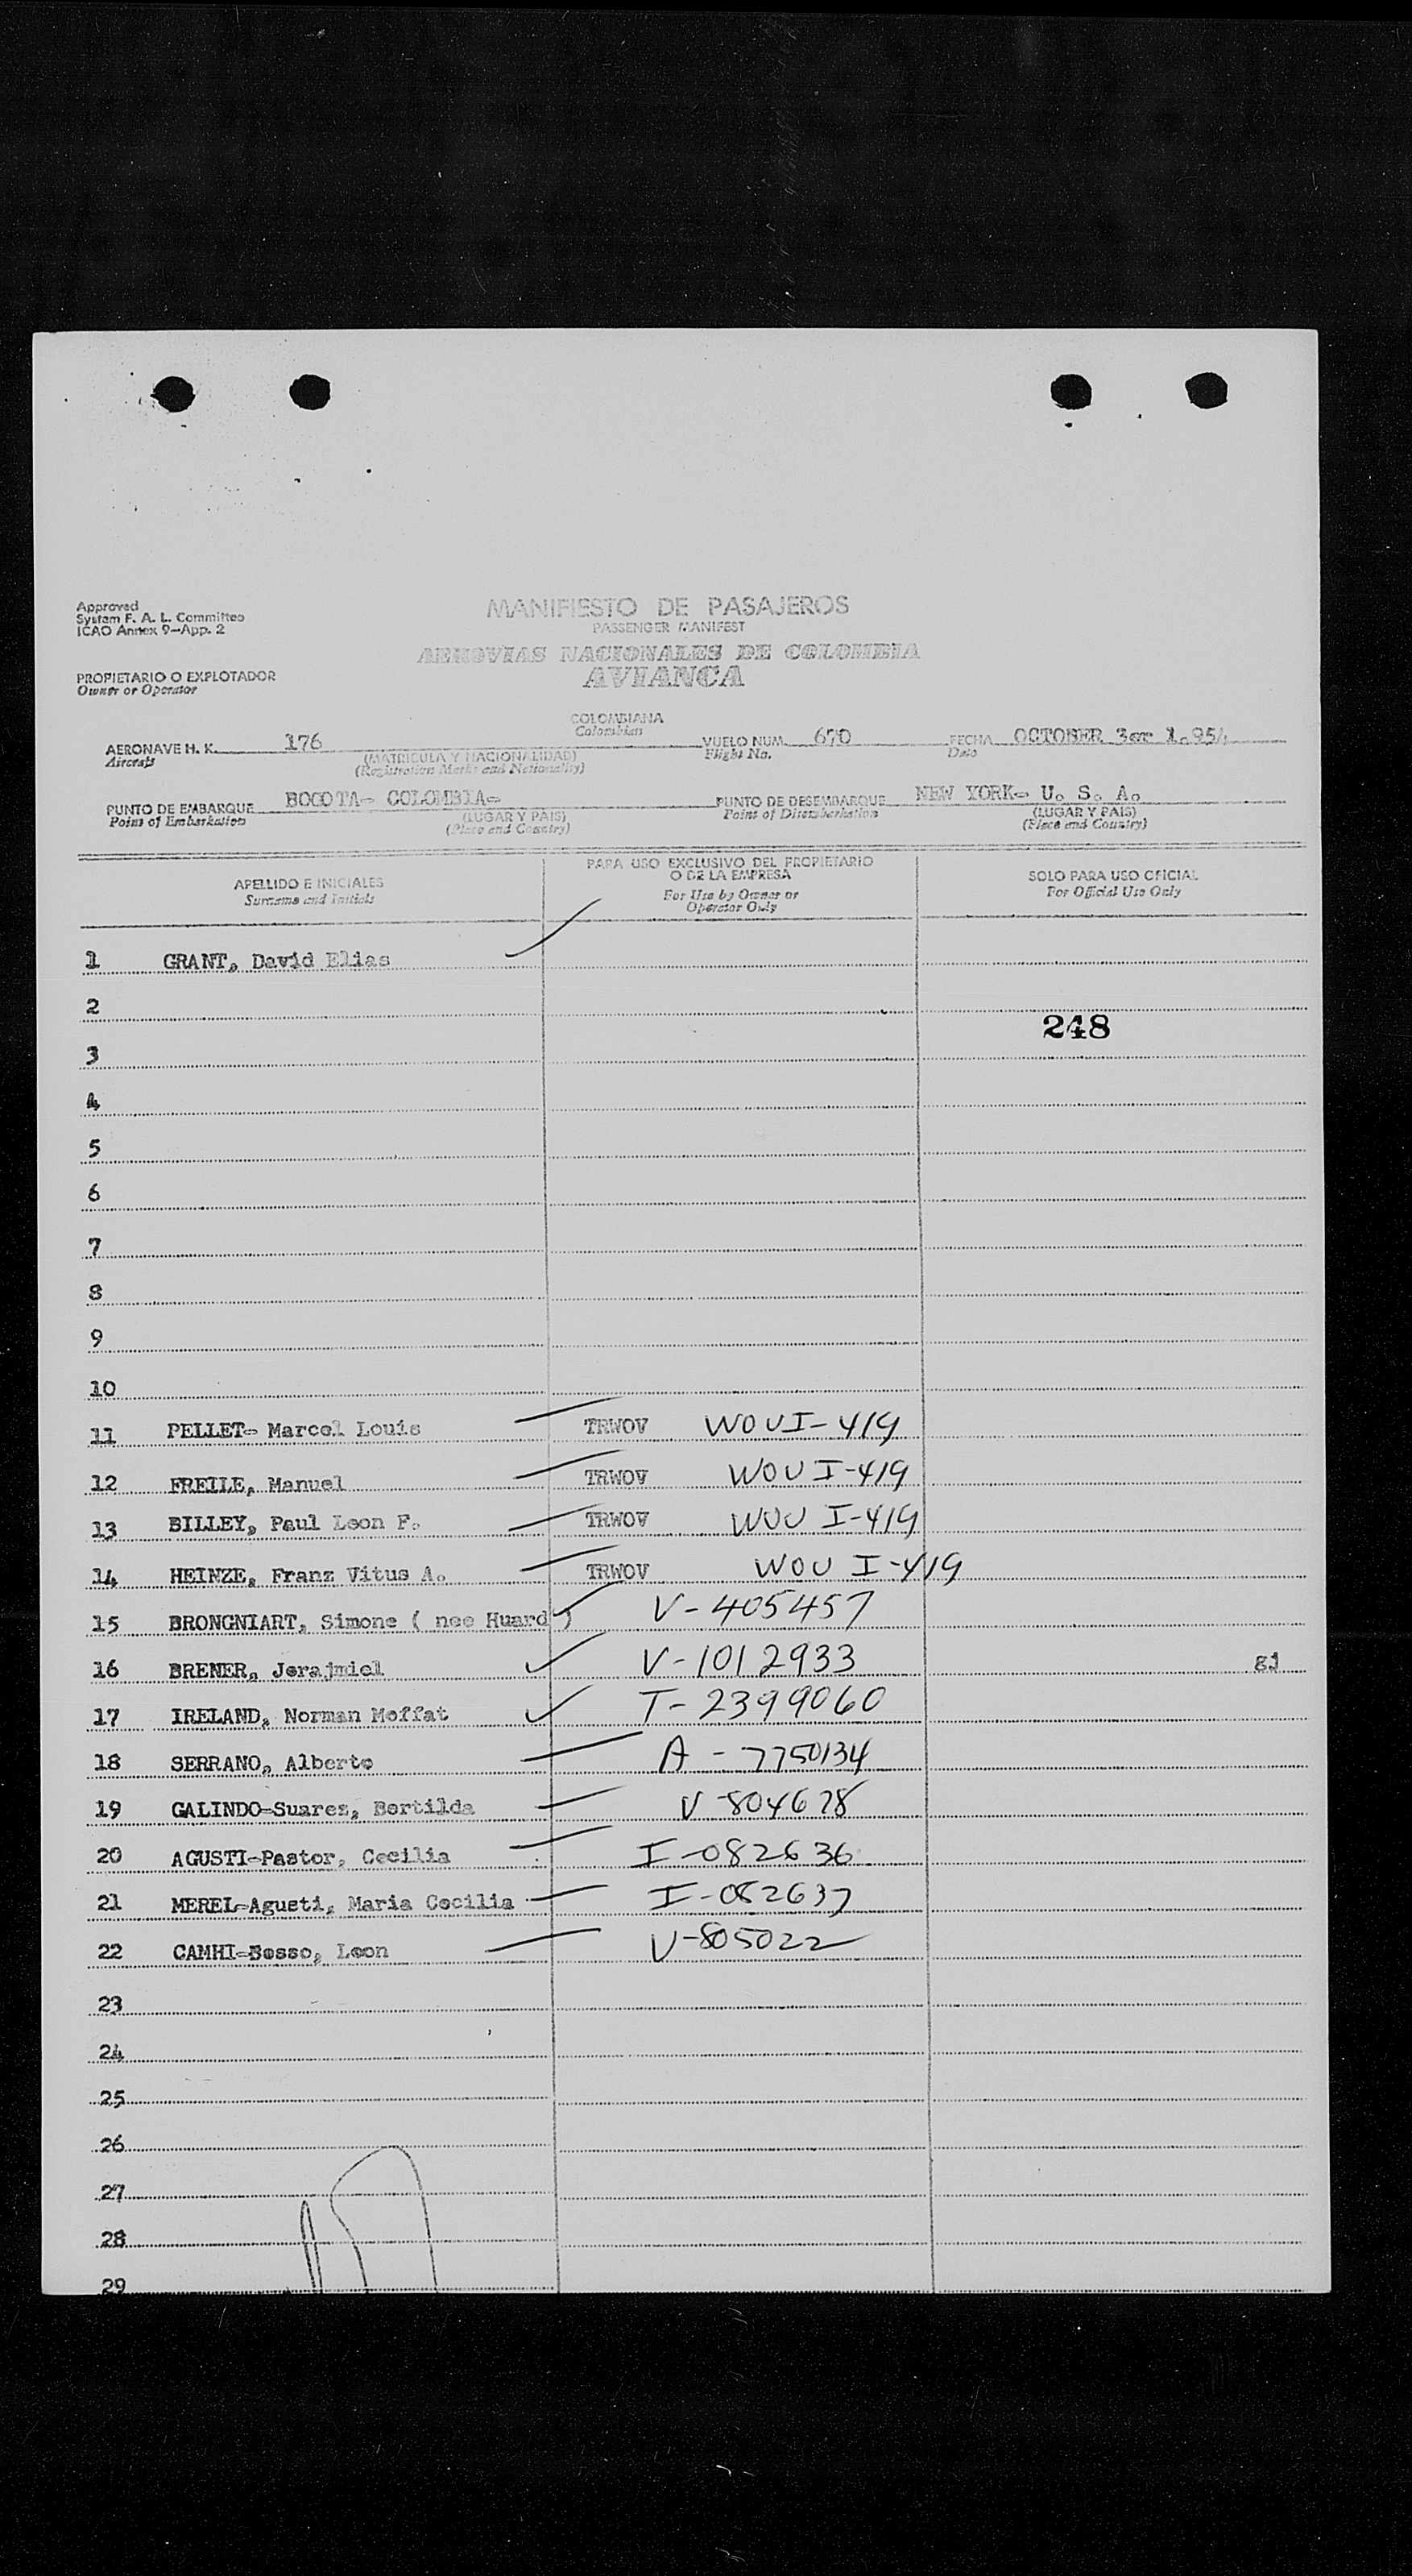 Approved
System F. A. L. Committee
ICAO Annex 9-App. 2
MANIFIESTO DE PASAJEROS
PASSENGER MANIFEST
AEROVIAS NACIONALES DE COLOMBIA
AVIANCA
PROPIETARIO O EXPLOTADOR
Owner or Operator
COLOMBIANA
Colombian
AERONAVE H. K. 176 VUELO NUM. 670 FECHA OCTOBER 3er 1.954
Aircraft (MATRICULA Y NACIONALIDAD) Flight No. Date
(Registration Marks and Nationality)
PUNTO DE EMBARQUE BOGOTA- COLOMBIA- PUNTO DE DESEMBARQUE NEW YORK- U. S. A.
Point of Embarkation (LUGAR Y PAIS) Point of Disembarkation (LUGAR Y PAIS)
(Place and Country) (Place and Country)
APELLIDO E INICIALES
Surname and Initials
PARA USO EXCLUSIVO DEL PROPIETARIO
O DE LA EMPRESA
For Use by Owner or
Operator Only
SOLO PARA USO OFICIAL
For Official Use Only
1 GRANT, David Elias
2
248
3
4
5
6
7
8
9
10
11 PELLET- Marcel Louis TRWOV WOUI-419
12 FREILE, Manuel TRWOV WOU I-419
13 BILLEY, Paul Leon F. TRWOV WOU I-419
14 HEINZE, Franz Vitus A. TRWOV WOU I-419
15 BRONGNIART, Simone ( nee Huard ) V-405457
16 BRENER, Jerajmiel V-1012933 gj
17 IRELAND, Norman Moffat T-2399060
18 SERRANO, Alberto A-7750134
19 GALINDO-Suarez, Bertilda V-804678
20 AGUSTI-Pastor, Cecilia I-082636
21 MEREL-Agusti, Maria Cecilia I-082637
22 CAMHI-Bosso, Leon V-805022
23
24
25
26
27
28
29